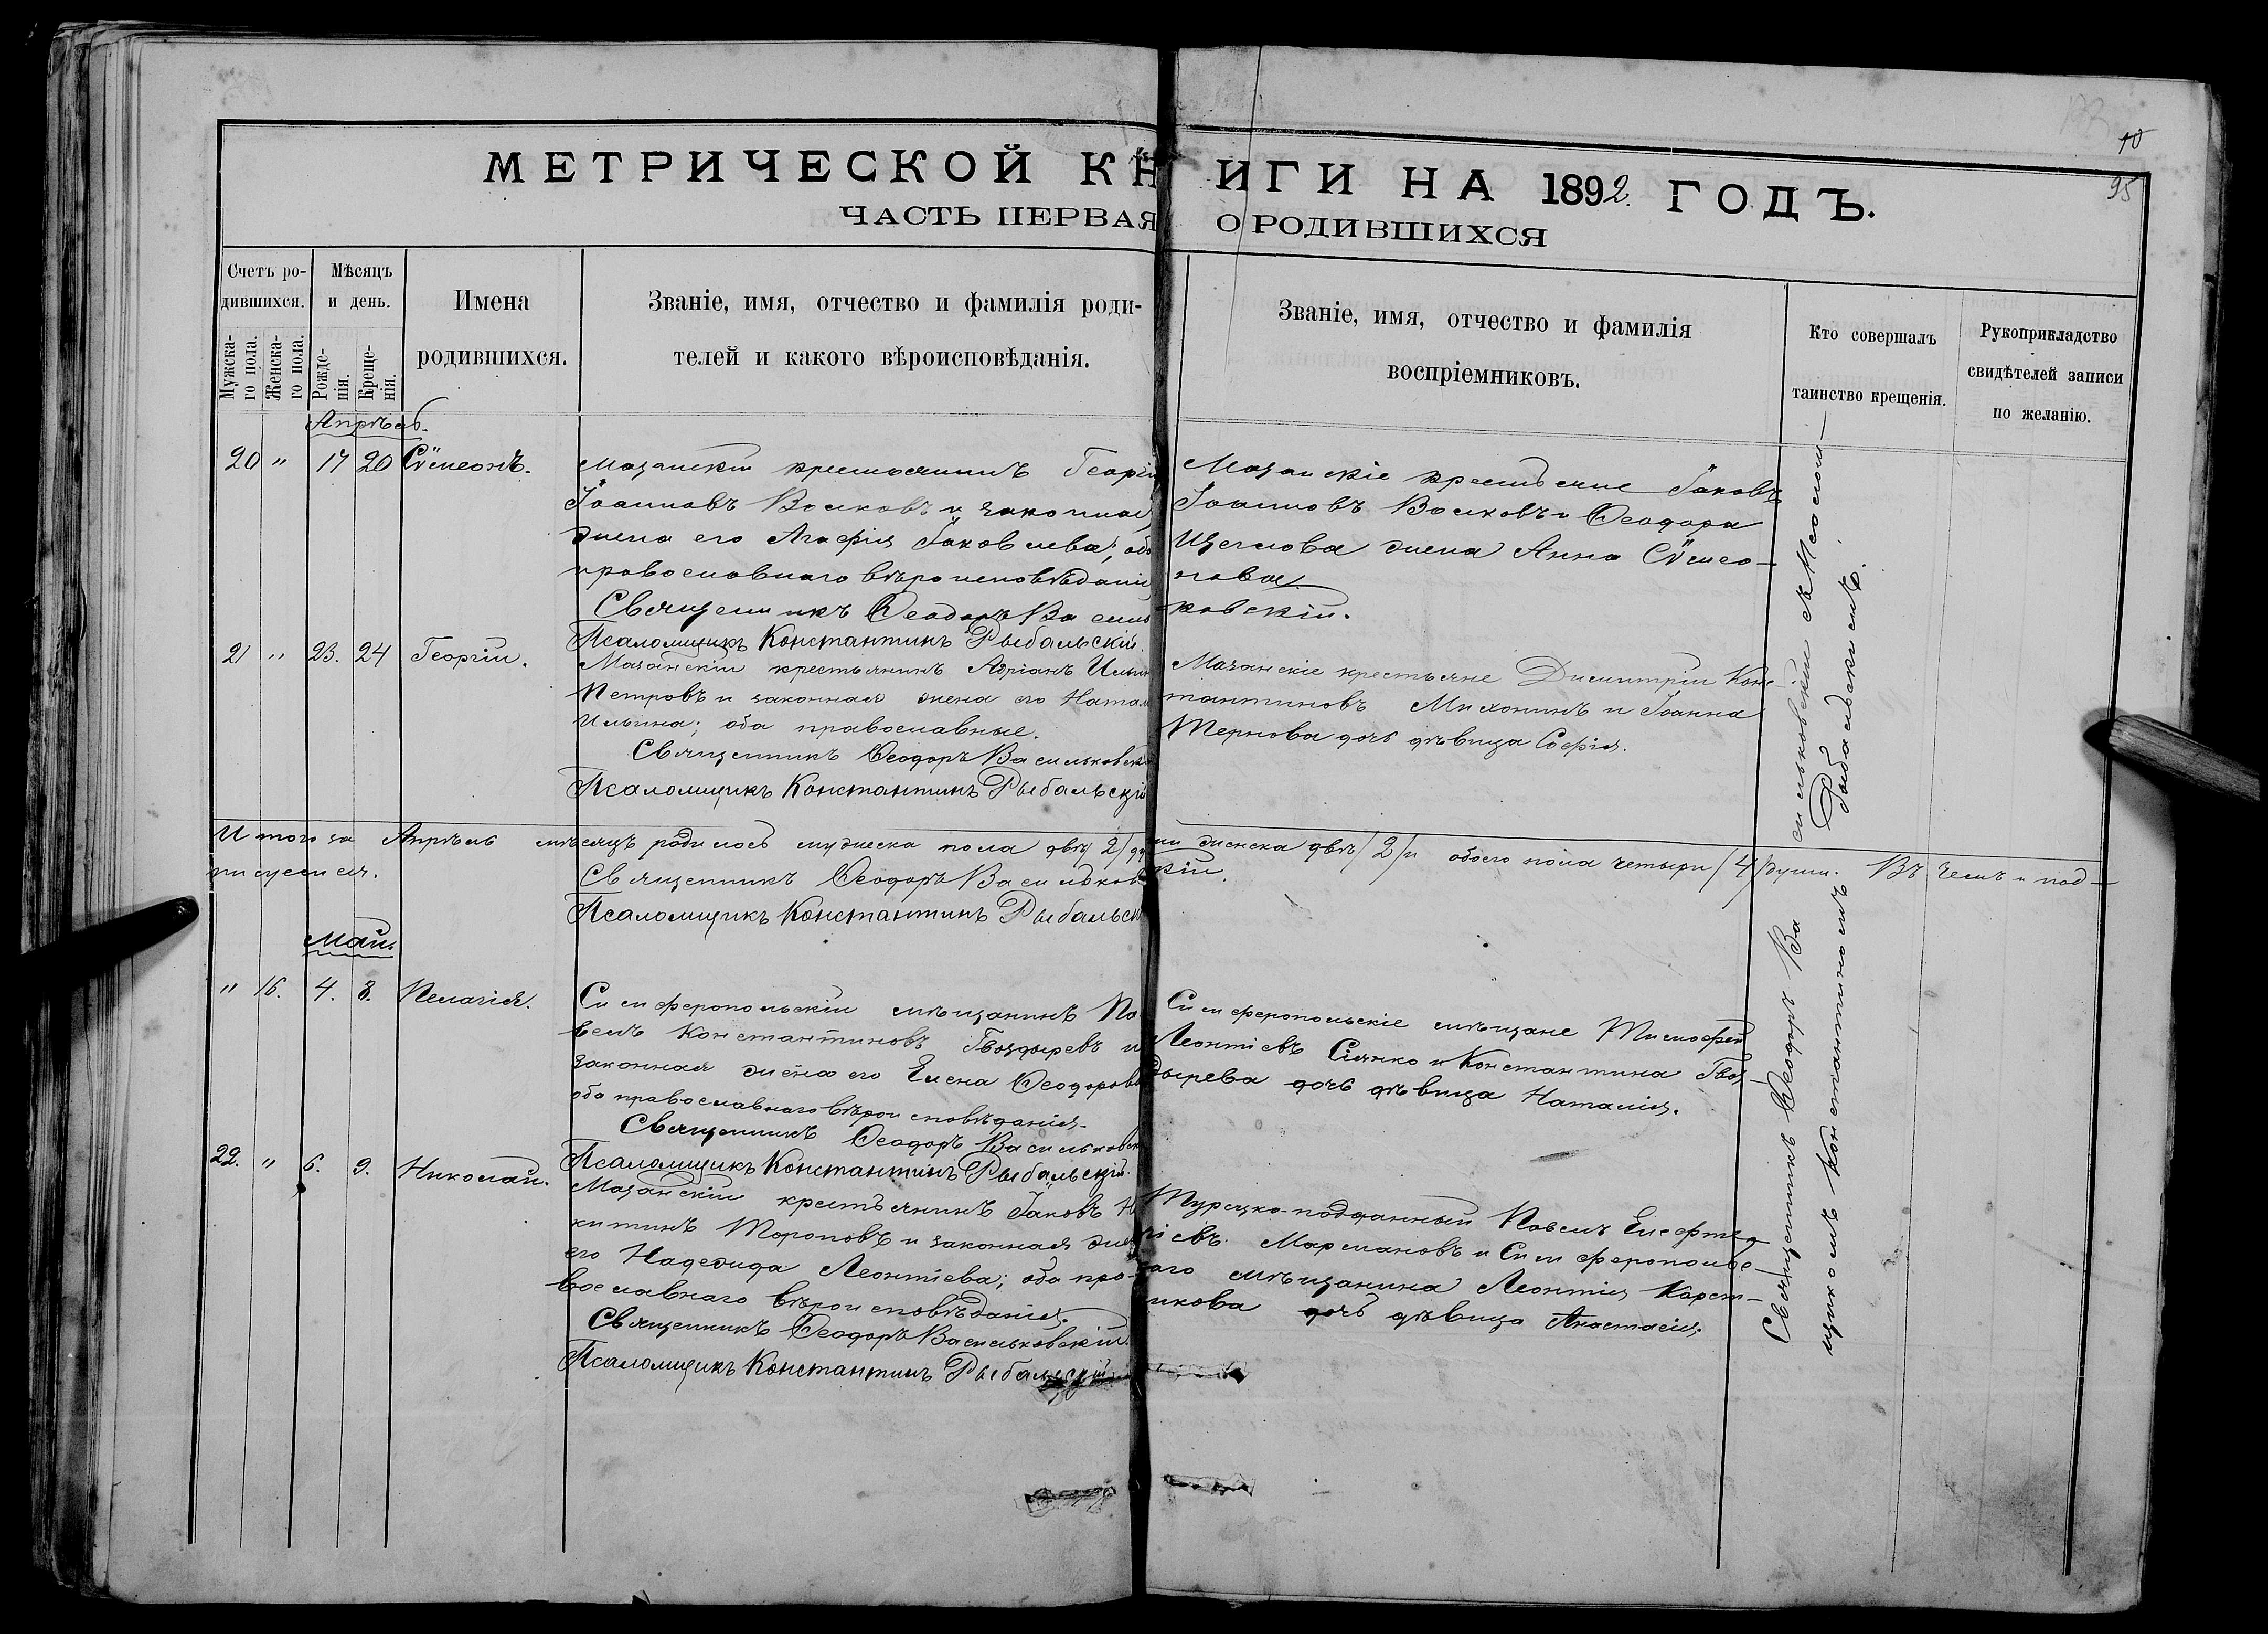 10
95
МЕТРИЧЕСКОЙ КНИГИ НА 1892 ГОДЪ.
ЧАСТЬ ПЕРВАЯ О РОДИВШИХСЯ
Счетъ ро-
дившихся.
Мужска-
го пола.
Женска-
го пола.
Мѣсяцъ
и день.
Рожде-
нія.
Креще-
нія.
Имена
родившихся.
Званіе, имя, отчество и фамилія роди-
телей и какого вѣроисповѣданія.
Званіе, имя, отчество и фамилія
воспріемниковъ.
Кто совершалъ
таинство крещенія.
Рукоприкладство
свидѣтелей записи
по желанію.
Апрѣль.
20 " 17 20 Сѵмеонъ.
Мазанскій крестьянинъ Георгі
Іоанновъ Волковъ и законная
жена его Агафія Іаковлева; оба
православнаго вѣроисповѣданія
Священникъ Ѳеодоръ Васильковскій.
Псаломщикъ Константинъ Рыбальскій.
Мазанскіе крестьяне Іаковъ
Іоанновъ Волковъ и Ѳеодора
Щеглова жена Анна Сѵмео-
нова
21 " 23. 24 Георгій.
Мазанскій крестьянинъ Адріанъ Ильин
Петровъ и законная жена его Натал
Ильина; оба православные.
Священникъ Ѳеодоръ Васильковскій
Псаломщикъ Константинъ Рыбальскій
Мазанскіе крестьяне Димитрій Конс-
тантиновъ Михонинъ и Іоанна
Тернова дочь дѣвица Софія.
Итого за Апрѣль мѣсяцъ родилось мужеска пола двѣ /2/ души женска двѣ /2/ и обоего пола четыри /4/ души. Въ чемъ и под-
писуемся.
Священникъ Ѳеодоръ Васильковскій.
Псаломщикъ Константинъ Рыбальскі
Май.
" 16. 4. 8. Пелагія.
Симферопольскій мѣщанинъ Па-
велъ Константиновъ Гвоздыревъ и
законная жена его Елена Ѳеодорова
оба православнаго вѣроисповѣданія.
Священникъ Ѳеодоръ Васильковскі
Псаломщикъ Константинъ Рыбальскій.
Симферопольскіе мѣщане Тимофей
Леонтіевъ Сіянко и Константина Гвоз-
дырева дочь дѣвица Наталія.
22. " 6. 9. Николай.
Мазанскій крестьянинъ Іаковъ Ни
китинъ Тороповъ и законная жена
его Надежда Леонтіева; оба пра-
вославнаго вѣроисповѣданія.
Священникъ Ѳеодоръ Васильковскій.
Псаломщикъ Константинъ Рыбальскій
Турецко-подданный Павелъ Елефте-
ріевъ Мармановъ и Симферопольс-
каго мѣщанина Леонтія Карет-
никова дочь дѣвица Анастасія.
Священникъ Ѳеодоръ Васильковскій съ Псалом-
щикомъ Константиномъ Рыбальскимъ.